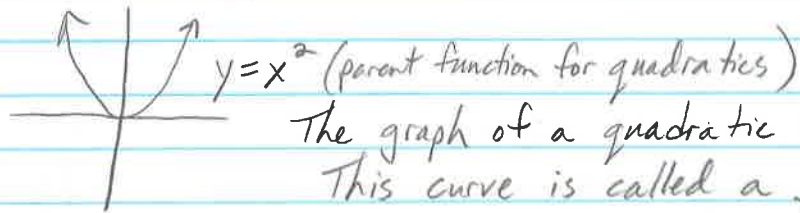 y=x² (parent function for quadratics)
The graph of a quadratic
This curve is called a